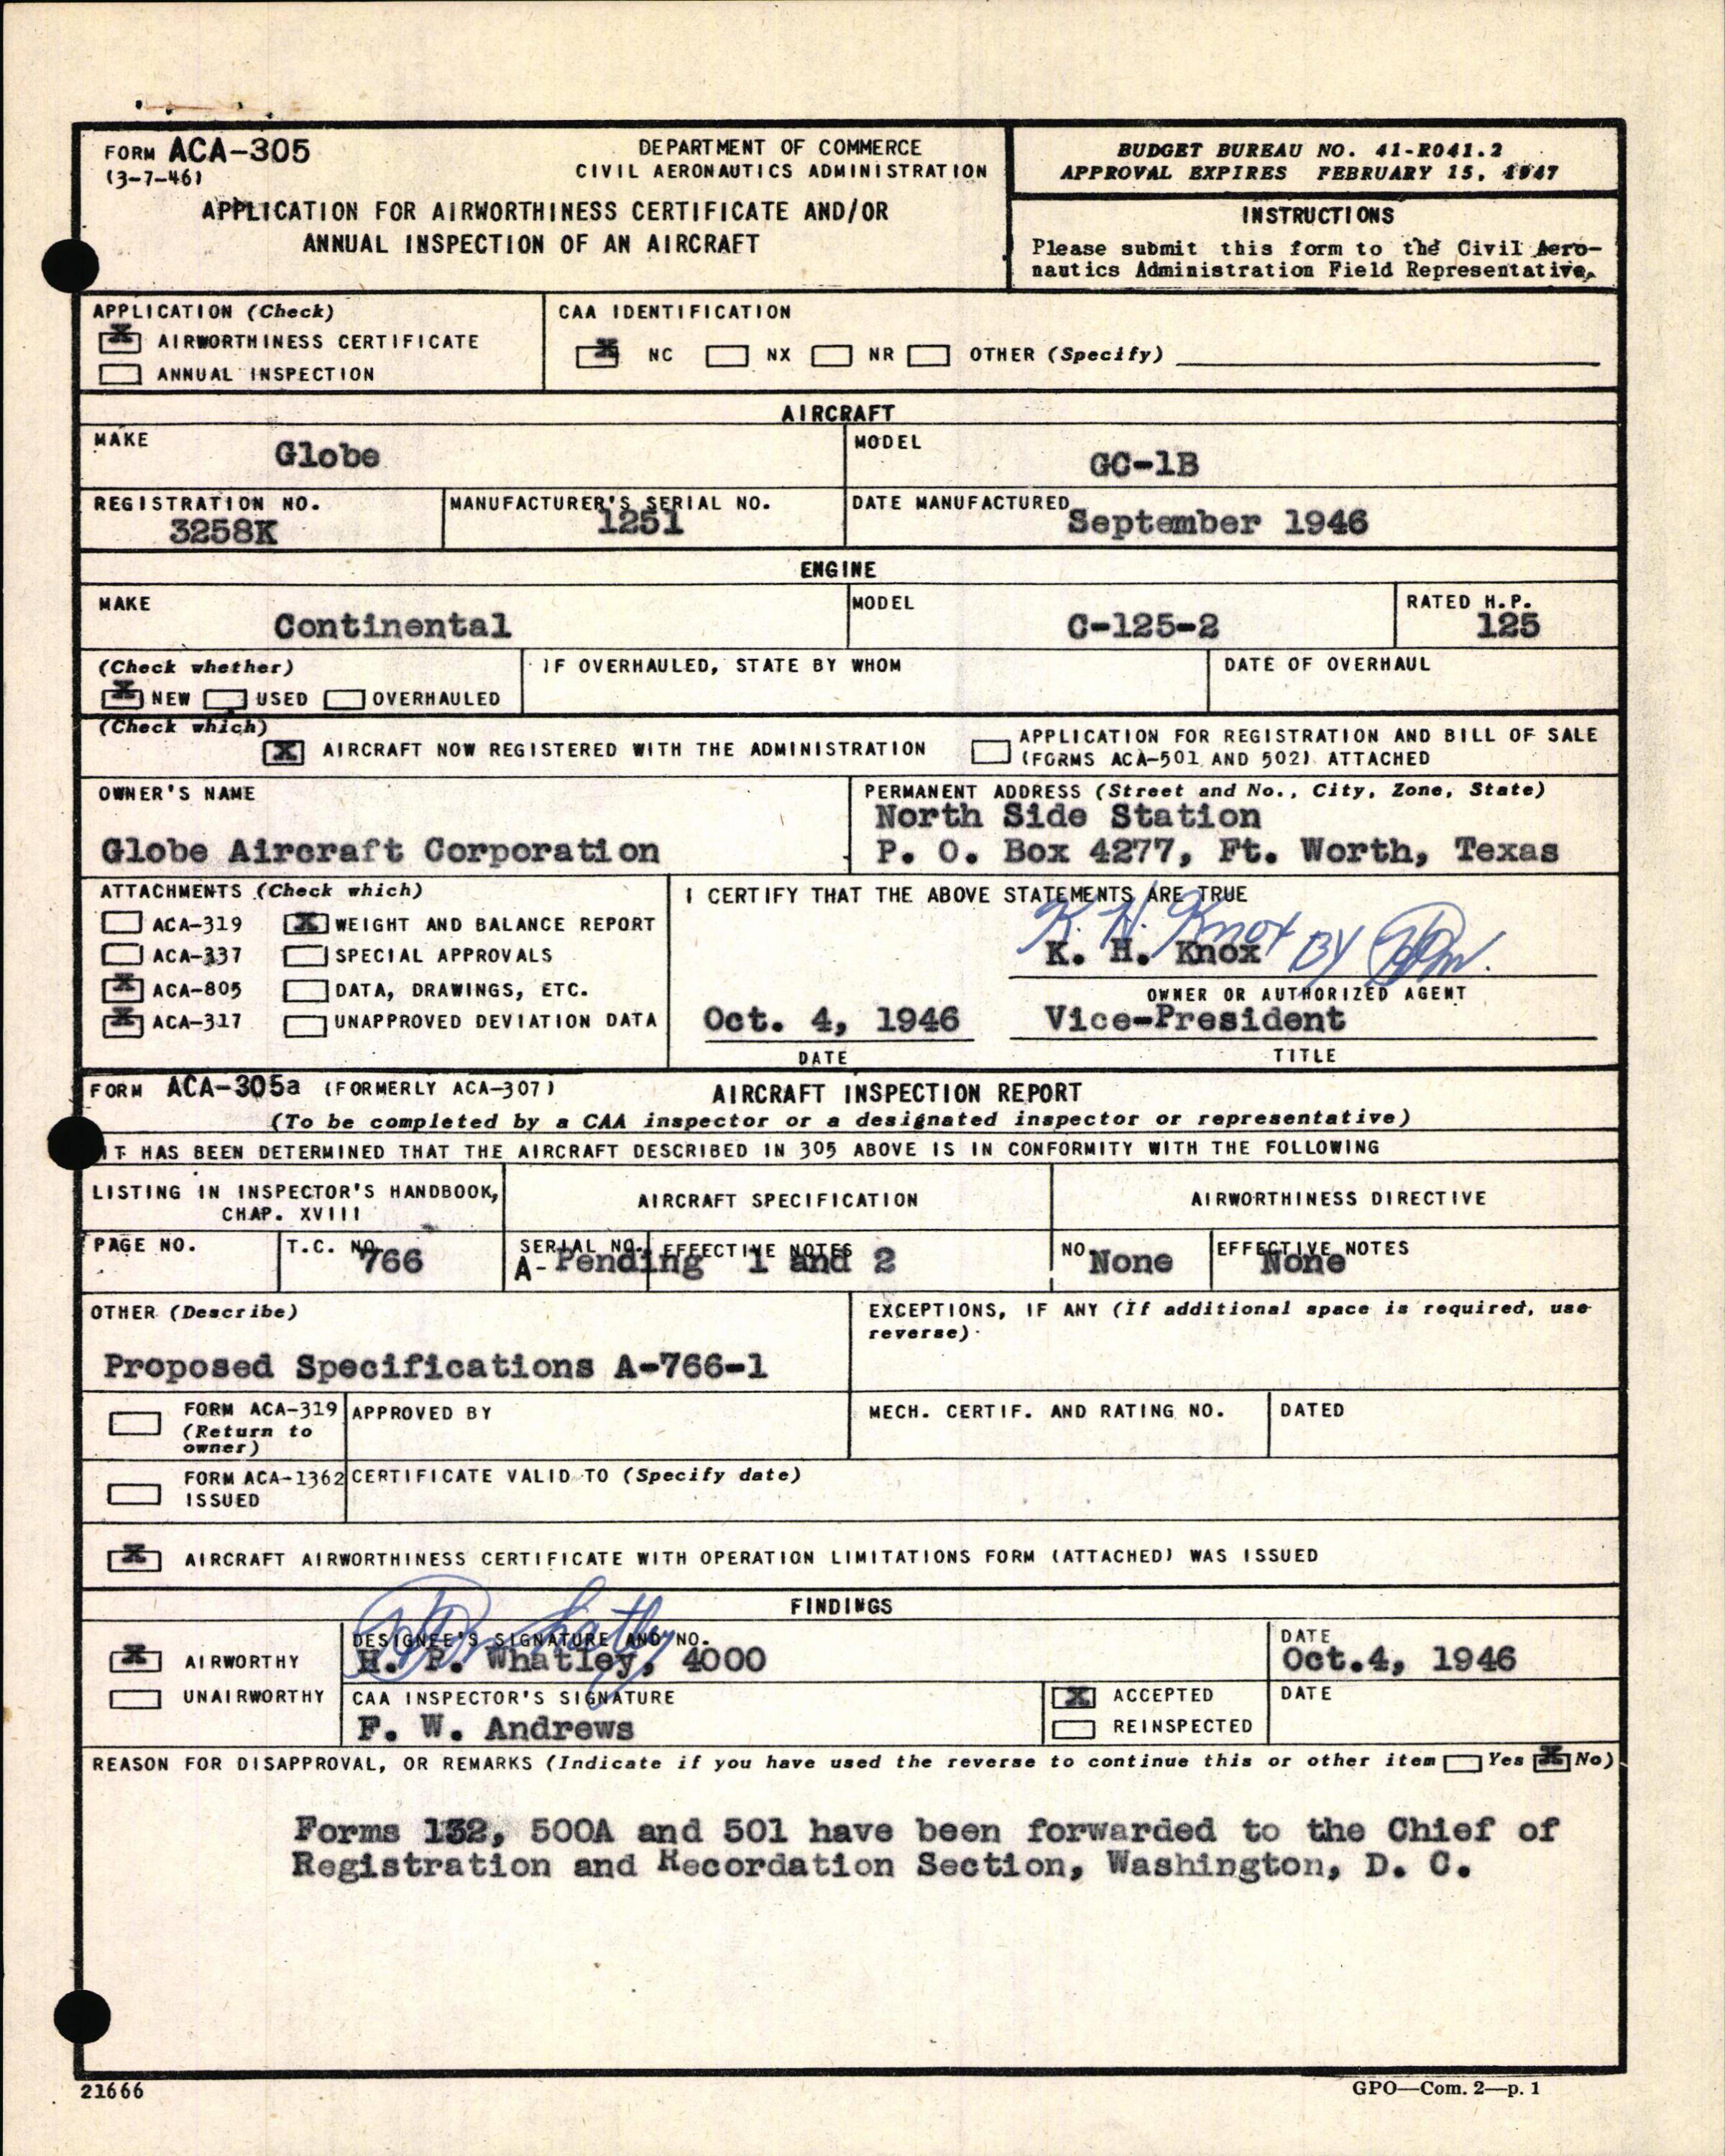 FORM ACA-305
(3-7-46)
DEPARTMENT OF COMMERCE
CIVIL AERONAUTICS ADMINISTRATION
APPLICATION FOR AIRWORTHINESS CERTIFICATE AND/OR
ANNUAL INSPECTION OF AN AIRCRAFT
BUDGET BUREAU NO. 41-R041.2
APPROVAL EXPIRES FEBRUARY 15, 1947
INSTRUCTIONS
Please submit this form to the Civil Aero-
nautics Administration Field Representative.
APPLICATION (Check)
X AIRWORTHINESS CERTIFICATE
ANNUAL INSPECTION
CAA IDENTIFICATION
X NC NX NR OTHER (Specify)
AIRCRAFT
MAKE
Globe
MODEL
GC-1B
REGISTRATION NO.
3258K
MANUFACTURER'S SERIAL NO.
1251
DATE MANUFACTURED
September 1946
ENGINE
MAKE
Continental
MODEL
C-125-2
RATED H.P.
125
(Check whether)
X NEW USED OVERHAULED
IF OVERHAULED, STATE BY WHOM
DATE OF OVERHAUL
(Check which)
X AIRCRAFT NOW REGISTERED WITH THE ADMINISTRATION
APPLICATION FOR REGISTRATION AND BILL OF SALE
(FORMS ACA-501 AND 502) ATTACHED
OWNER'S NAME
Globe Aircraft Corporation
PERMANENT ADDRESS (Street and No., City, Zone, State)
North Side Station
P. O. Box 4277, Ft. Worth, Texas
ATTACHMENTS (Check which)
ACA-319 X WEIGHT AND BALANCE REPORT
ACA-337 SPECIAL APPROVALS
X ACA-805 DATA, DRAWINGS, ETC.
X ACA-317 UNAPPROVED DEVIATION DATA
I CERTIFY THAT THE ABOVE STATEMENTS ARE TRUE
K. H. Knox BY
K. H. Knox
OWNER OR AUTHORIZED AGENT
Oct. 4, 1946
DATE
Vice-President
TITLE
FORM ACA-305a (FORMERLY ACA-307)
AIRCRAFT INSPECTION REPORT
(To be completed by a CAA inspector or a designated inspector or representative)
IT HAS BEEN DETERMINED THAT THE AIRCRAFT DESCRIBED IN 305 ABOVE IS IN CONFORMITY WITH THE FOLLOWING
LISTING IN INSPECTOR'S HANDBOOK,
CHAP. XVIII
AIRCRAFT SPECIFICATION
AIRWORTHINESS DIRECTIVE
PAGE NO.
T.C. NO.
766
SERIAL NO.
A- Pending
EFFECTIVE NOTES
1 and 2
NO.
None
EFFECTIVE NOTES
None
OTHER (Describe)
Proposed Specifications A-766-1
EXCEPTIONS, IF ANY (If additional space is required, use
reverse)
FORM ACA-319
(Return to
owner)
APPROVED BY
MECH. CERTIF. AND RATING NO.
DATED
FORM ACA-1362
ISSUED
CERTIFICATE VALID TO (Specify date)
X AIRCRAFT AIRWORTHINESS CERTIFICATE WITH OPERATION LIMITATIONS FORM (ATTACHED) WAS ISSUED
FINDINGS
X AIRWORTHY
UNAIRWORTHY
DESIGNEE'S SIGNATURE AND NO.
H. P. Whatley, 4000
DATE
Oct.4, 1946
CAA INSPECTOR'S SIGNATURE
F. W. Andrews
X ACCEPTED
REINSPECTED
DATE
REASON FOR DISAPPROVAL, OR REMARKS (Indicate if you have used the reverse to continue this or other item Yes X No)
Forms 132, 500A and 501 have been forwarded to the Chief of
Registration and Recordation Section, Washington, D. C.
21666
GPO—Com. 2—p. 1